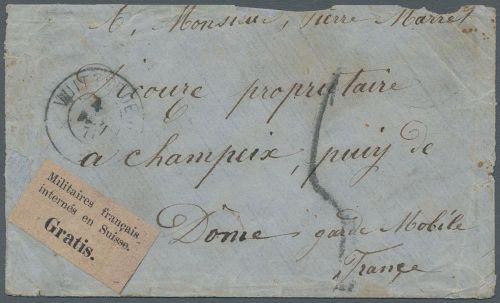 A, Monsieur, Pierre Marret
propriétaire
a champeix, puij de
Dôme garde Mobile
France
Militaires français
internés en Suisse.
Gratis.